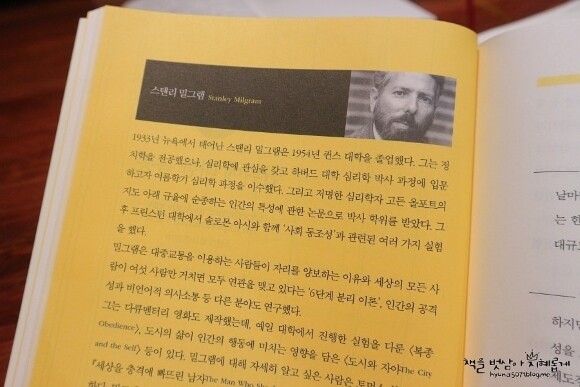 스탠리 밀그램 Stanley Milgram
1933년 뉴욕에서 태어난 스탠리 밀그램은 1954년 퀸스 대학을 졸업했다. 그는 정
치학을 전공했으나, 심리학에 관심을 갖고 하버드 대학 심리학 박사 과정에 입문
하고자 여름학기 심리학 과정을 이수했다. 그리고 저명한 심리학자 고든 올포트의
지도 아래 규율에 순종하는 인간의 특성에 관한 논문으로 박사 학위를 받았다. 그
후 프린스턴 대학에서 솔로몬 아시와 함께 '사회 동조성'과 관련된 여러 가지 실험
을 했다.
밀그램은 대중교통을 이용하는 사람들이 자리를 양보하는 이유와 세상의 모든 사
람이 여섯 사람만 거치면 모두 연관을 맺고 있다는 '6단계 분리 이론', 인간의 공격
성과 비언어적 의사소통 등 다른 분야도 연구했다.
그는 다큐멘터리 영화도 제작했는데, 예일 대학에서 진행한 실험을 다룬 〈복종
Obedience〉, 도시의 삶이 인간의 행동에 미치는 영향을 담은 〈도시와 자아The City
and the Self〉 등이 있다. 밀그램에 대해 자세히 알고 싶은 사람은 토머스
『세상을 충격에 빠뜨린 남자The Man Who
날마
는 한
대규
하지만
책을 벗삼아 지혜롭게
hyunj5071.blog.me